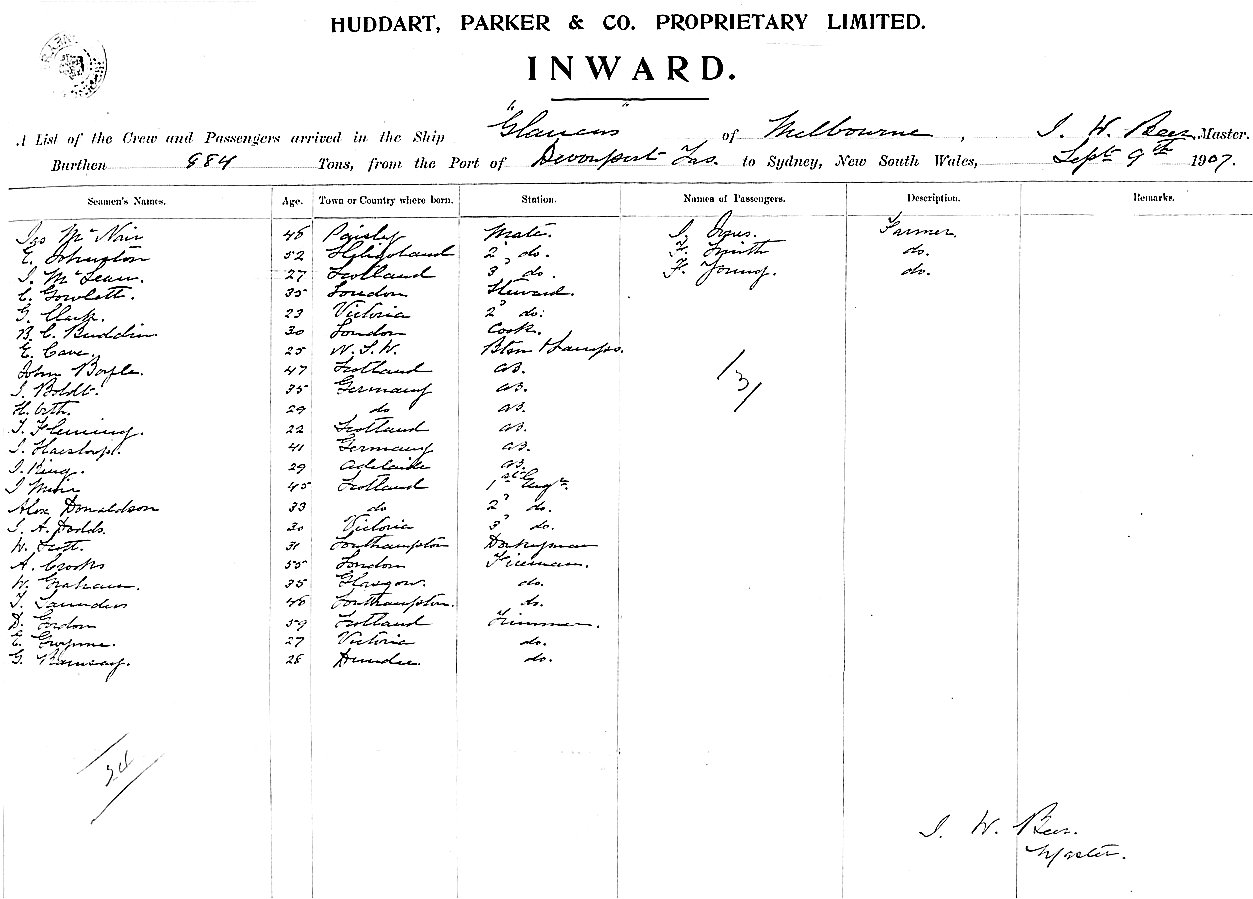 HUDDART, PARKER & CO. PROPRIETARY LIMITED.
INWARD.
A List of the Crew and Passengers arrived in the Ship "Glaucus" of Melbourne, J. W. Bees Master.
Burthen 984 Tons, from the Port of Devonport Tas. to Sydney, New South Wales, Sept 9th 1907.
Seamen's Names. Age. Town or Country where born. Station. Names of Passengers. Description. Remarks.
Jas McNair 46 Paisley Mate. J. Farmer
E. Johnston 52 Heligoland 2" do. Smith do.
J. McLean. 27 Scotland 3" do. F. Young. do.
C. Gowlett. 35 London Steward.
G. Clark. 23 Victoria 2" do.
B. C. Buddin 30 London Cook.
E. Cave. 25 N.S.W. Btsn & Lamps.
John Boyle. 47 Scotland AB.
J. Boldt. 35 Germany AB.
H. Orth. 29 do AB.
J. Fleming. 22 Scotland AB.
J. 41 Germany AB.
J. King. 29 Adelaide AB.
J Muir 45 Scotland 1st Engr.
Alex Donaldson 33 do 2" do.
J. A. Dodds. 30 Victoria 3" do.
W. Scott. 31 Southampton Donkeyman
A. Crooks 55 London Fireman.
W. Graham. 35 Glasgow. do.
T. Saunders 46 Southampton. do.
D. Gordon 59 Scotland Trimmer.
E. Gwynne. 27 Victoria do.
G. Ramsay. 28 Dundee. do.
/3/
/24/
J. W. Bees.
Master.